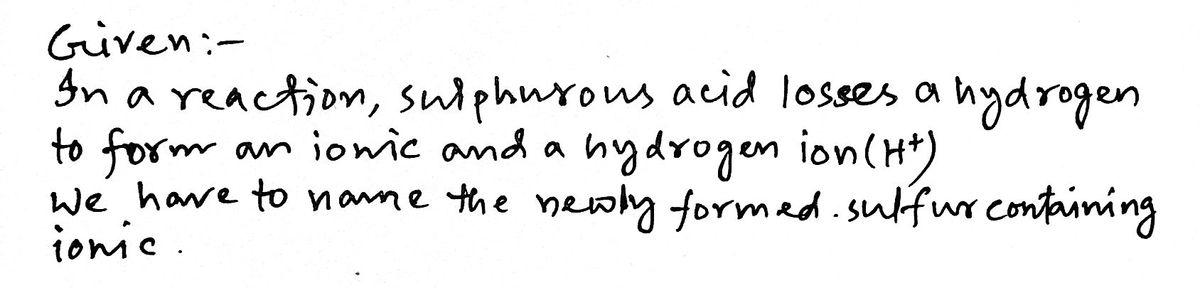 Given:-
In a reaction, sulphurous acid losses a hydrogen
to form an ionic and a hydrogen ion (H⁺)
We have to name the newly formed. sulfur containing
ionic.